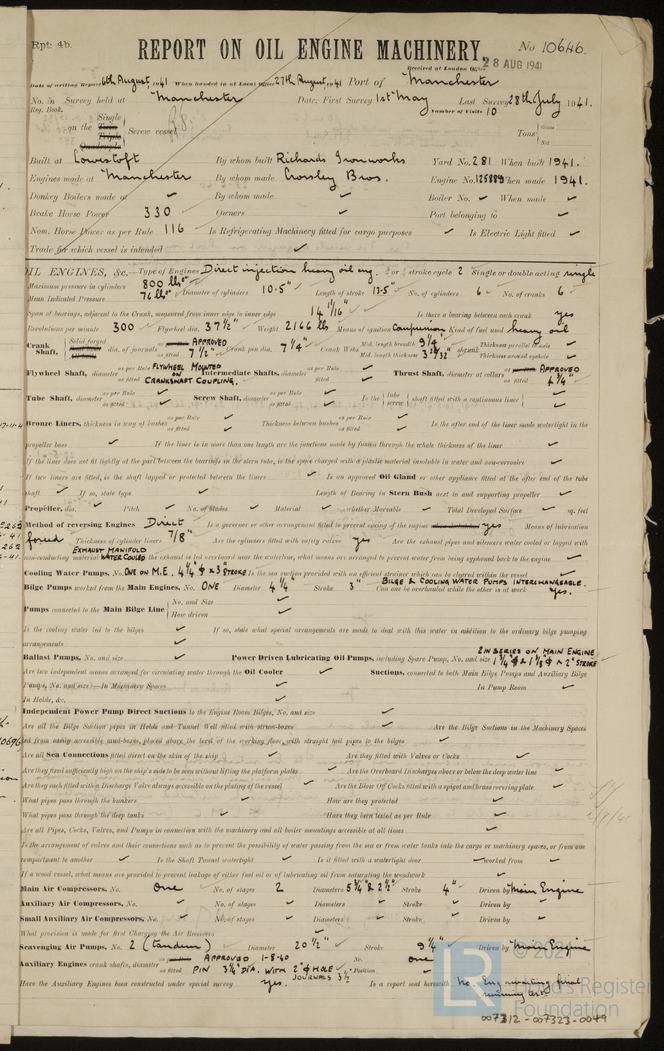 Rpt. 4b.
REPORT ON OIL ENGINE MACHINERY.
No 10646.
Received at London Office
28 AUG 1941
Date of writing Report 6th August, 1941 When handed in at Local Office 27th August, 1941 Port of Manchester
No. in Survey held at Manchester Date, First Survey 1st May Last Survey 28th July 1941.
Reg. Book. Number of Visits 10
on the Single Twin Triple Quadruple Screw vessel Tons Gross Net
Built at Lowestoft By whom built Richards Ironworks Yard No. 281 When built 1941.
Engines made at Manchester By whom made Crossley Bros. Engine No. 125889 When made 1941.
Donkey Boilers made at ✓ By whom made ✓ Boiler No. ✓ When made ✓
Brake Horse Power 330 Owners ✓ Port belonging to ✓
Nom. Horse Power as per Rule 116 Is Refrigerating Machinery fitted for cargo purposes ✓ Is Electric Light fitted ✓
Trade for which vessel is intended ✓
OIL ENGINES, &c.—Type of Engines Direct injection heavy oil eng. 2 or 4 stroke cycle 2 Single or double acting single
Maximum pressure in cylinders 800 lbs□" Diameter of cylinders 10.5" Length of stroke 13.5" No. of cylinders 6 No. of cranks 6
Mean Indicated Pressure 76 lbs□"
Span of bearings, adjacent to the Crank, measured from inner edge to inner edge 14 1/16" Is there a bearing between each crank yes
Revolutions per minute 300 Flywheel dia. 37½" Weight 2166 lbs Means of ignition Compression Kind of fuel used heavy oil
Crank Shaft, Solid forged dia. of journals as per Rule APPROVED as fitted 7½" Crank pin dia. 7¼" Crank Webs Mid. length breadth 9¼" Mid. length thickness 3 23/32" shrunk Thickness parallel to axis ✓ Thickness around eyehole ✓
Flywheel Shaft, diameter as per Rule as fitted FLYWHEEL MOUNTED ON CRANKSHAFT COUPLING. Intermediate Shafts, diameter as per Rule as fitted ✓ Thrust Shaft, diameter at collars as per Rule APPROVED as fitted 4¾"
Tube Shaft, diameter as per Rule as fitted ✓ Screw Shaft, diameter as per Rule as fitted ✓ Is the tube screw shaft fitted with a continuous liner ✓
Bronze Liners, thickness in way of bushes as per Rule as fitted ✓ Thickness between bushes as per Rule as fitted ✓ Is the after end of the liner made watertight in the
propeller boss ✓ If the liner is in more than one length are the junctions made by fusion through the whole thickness of the liner ✓
If the liner does not fit tightly at the part between the bearings in the stern tube, is the space charged with a plastic material insoluble in water and non-corrosive ✓
If two liners are fitted, is the shaft lapped or protected between the liners ✓ Is an approved Oil Gland or other appliance fitted at the after end of the tube
shaft ✓ If so, state type ✓ Length of Bearing in Stern Bush next to and supporting propeller ✓
Propeller, dia. ✓ Pitch ✓ No. of blades ✓ Material ✓ whether Moveable ✓ Total Developed Surface ✓ sq. feet
Method of reversing Engines Direct Is a governor or other arrangement fitted to prevent racing of the engine yes Means of lubrication
forced Thickness of cylinder liners 7/8" Are the cylinders fitted with safety valves yes Are the exhaust pipes and silencers water cooled or lagged with
non-conducting material EXHAUST MANIFOLD WATER COOLED If the exhaust is led overboard near the waterline, what means are arranged to prevent water from being syphoned back to the engine ✓
Cooling Water Pumps, No. ONE ON M.E. 4¼"Φ x 3" STROKE Is the sea suction provided with an efficient strainer which can be cleared within the vessel ✓
Bilge Pumps worked from the Main Engines, No. ONE Diameter 4¼" Stroke 3" Can one be overhauled while the other is at work BILGE & COOLING WATER PUMPS INTERCHANGEABLE. yes.
Pumps connected to the Main Bilge Line No. and Size ✓ How driven ✓
Is the cooling water led to the bilges ✓ If so, state what special arrangements are made to deal with this water in addition to the ordinary bilge pumping
arrangements ✓
Ballast Pumps, No. and size ✓ Power Driven Lubricating Oil Pumps, including Spare Pump, No. and size 2 IN SERIES ON MAIN ENGINE 1¼"Φ & 1⅛"Φ x 2" STROKE
Are two independent means arranged for circulating water through the Oil Cooler ✓ Suctions, connected to both Main Bilge Pumps and Auxiliary Bilge
Pumps, No. and size:—In Machinery Spaces ✓ In Pump Room ✓
In Holds, &c. ✓
Independent Power Pump Direct Suctions to the Engine Room Bilges, No. and size ✓
Are all the Bilge Suction pipes in Holds and Tunnel Well fitted with strum-boxes ✓ Are the Bilge Suctions in the Machinery Spaces
led from easily accessible mud-boxes, placed above the level of the working floor, with straight tail pipes to the bilges ✓
Are all Sea Connections fitted direct on the skin of the ship ✓ Are they fitted with Valves or Cocks ✓
Are they fixed sufficiently high on the ship's side to be seen without lifting the platform plates ✓ Are the Overboard Discharges above or below the deep water line ✓
Are they each fitted with a Discharge Valve always accessible on the plating of the vessel ✓ Are the Blow Off Cocks fitted with a spigot and brass covering plate ✓
What pipes pass through the bunkers ✓ How are they protected ✓
What pipes pass through the deep tanks ✓ Have they been tested as per Rule ✓
Are all Pipes, Cocks, Valves, and Pumps in connection with the machinery and all boiler mountings accessible at all times ✓
Is the arrangement of valves and their connections such as to prevent the possibility of water passing from the sea or from water tanks into the cargo or machinery spaces, or from one
compartment to another ✓ Is the Shaft Tunnel watertight ✓ Is it fitted with a watertight door ✓ worked from ✓
If a wood vessel, what means are provided to prevent leakage of either fuel oil or of lubricating oil from saturating the woodwork ✓
Main Air Compressors, No. One No. of stages 2 Diameters 5¾" & 2½" Stroke 4" Driven by Main Engine
Auxiliary Air Compressors, No. ✓ No. of stages ✓ Diameters ✓ Stroke ✓ Driven by ✓
Small Auxiliary Air Compressors, No. ✓ No. of stages ✓ Diameters ✓ Stroke ✓ Driven by ✓
What provision is made for first Charging the Air Receivers ✓
Scavenging Air Pumps, No. 2 (tandem) Diameter 20½" Stroke 9¼" Driven by Main Engine
Auxiliary Engines crank shafts, diameter as per Rule APPROVED 1-8-40 as fitted PIN 3¼" DIA. WITH 2"Φ HOLE JOURNALS 3½" No. one Position ✓
Have the Auxiliary Engines been constructed under special survey yes. Is a report sent herewith No. Eng awaiting final running test.
© 2021
LR
Lloyd's Register
Foundation
007312-007323-0049